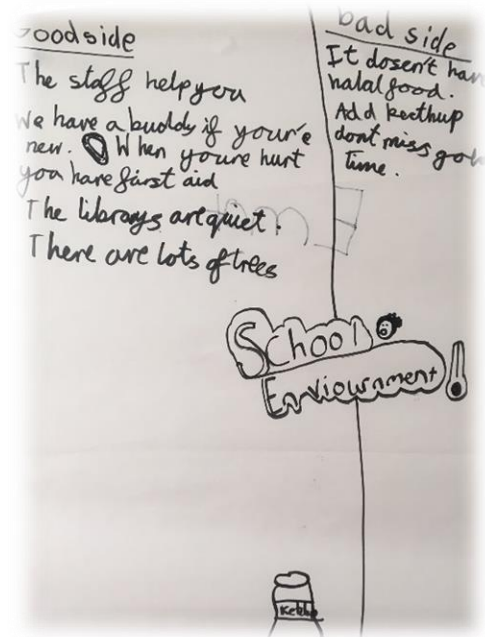 Good side
The staff help you
We have a buddy if your'e
new. When youre hurt
you have farst aid
The librays are quiet.
There are lots of trees
bad side
It dosen't have
halal food.
Add kecthup
dont miss gold
time.
School
Enviournment